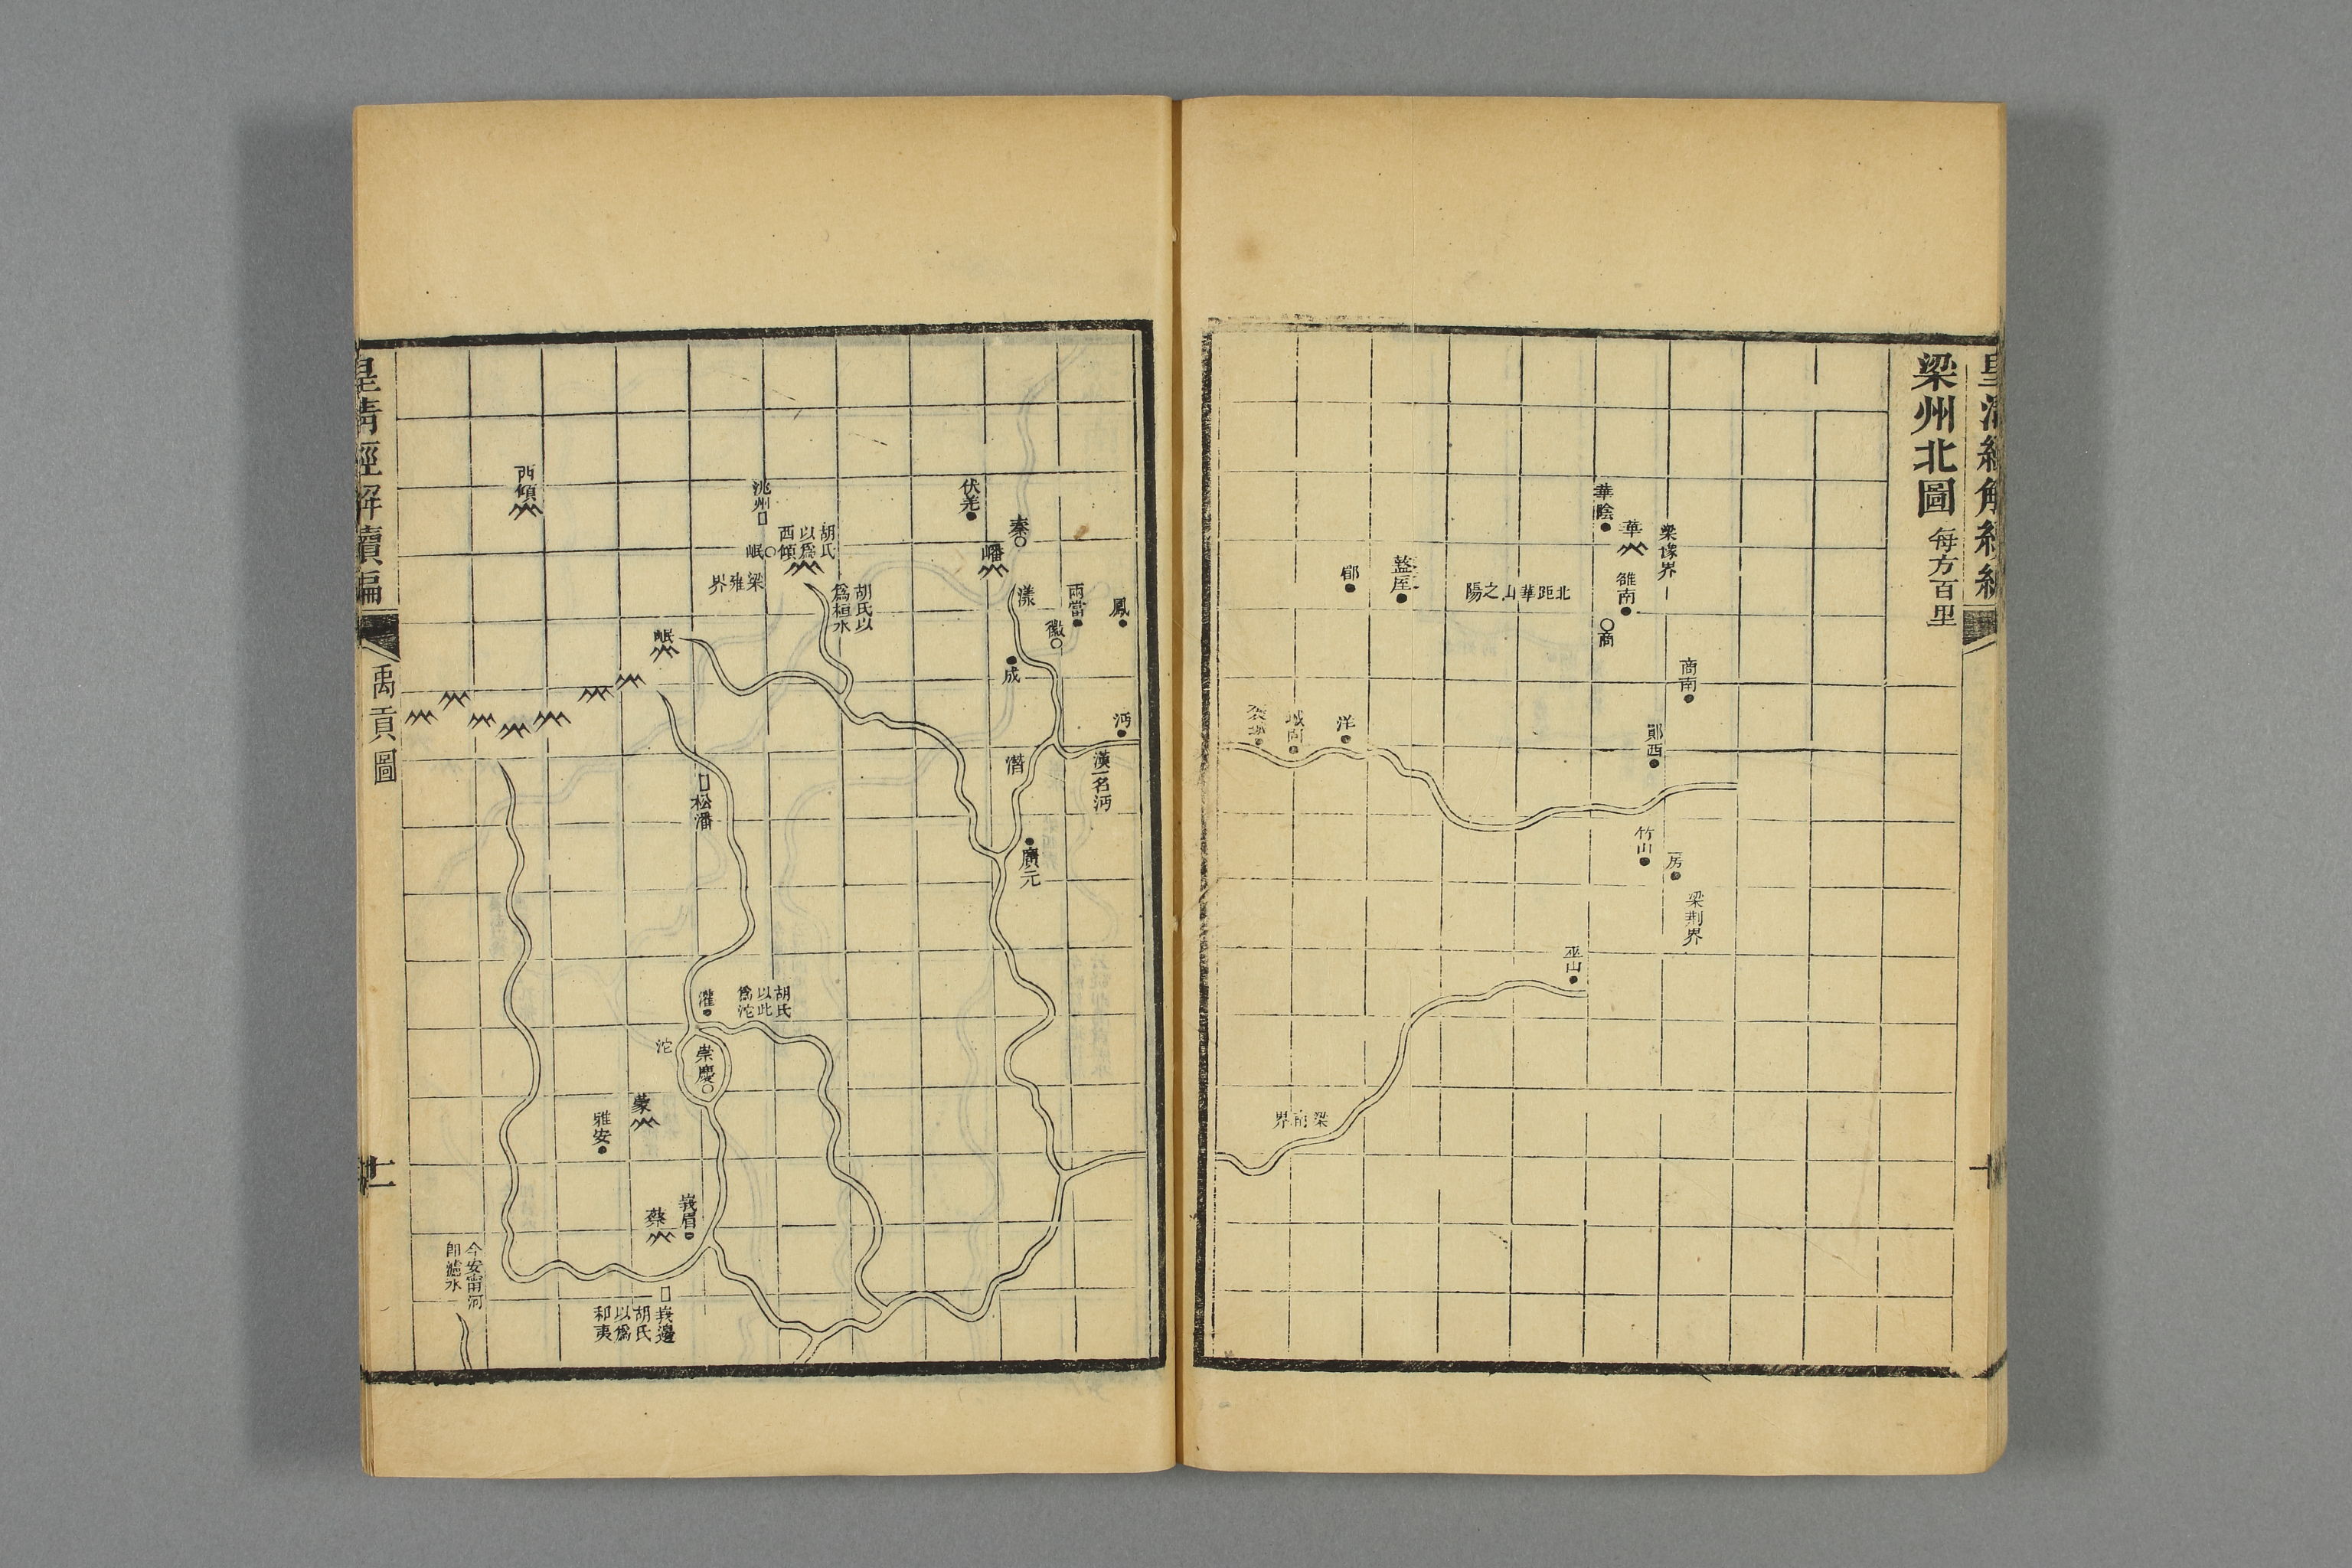 梁州北圖 每方百里
華陰
華
梁豫界
雒南
商
北距華山之陽
盩厔
郿
商南
鄖西
洋
城固
竹山
房
梁荊界
巫山
鳳
兩當
徽
秦
嶓
漾
伏羌
成
沔
漢一名沔
潛
廣元
胡氏以爲西傾
胡氏以爲桓水
洮州
岷
梁雍界
西傾
岷
松潘
灌
胡氏以此爲沱
沱
崇慶
蒙
雅安
峩眉
蔡
峩邊
胡氏以爲和夷
今安甯河
皇清經解續編
禹貢圖